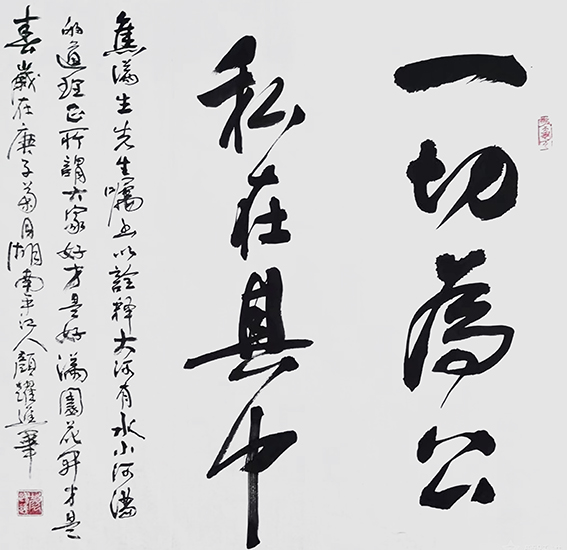 一切為公
私在其中
焦滿生先生囑書以詮釋大河有水小河滿
的道理正所謂大家好才是好滿園花開才是
春歲在庚子菊月湖南平江人顏躍進筆